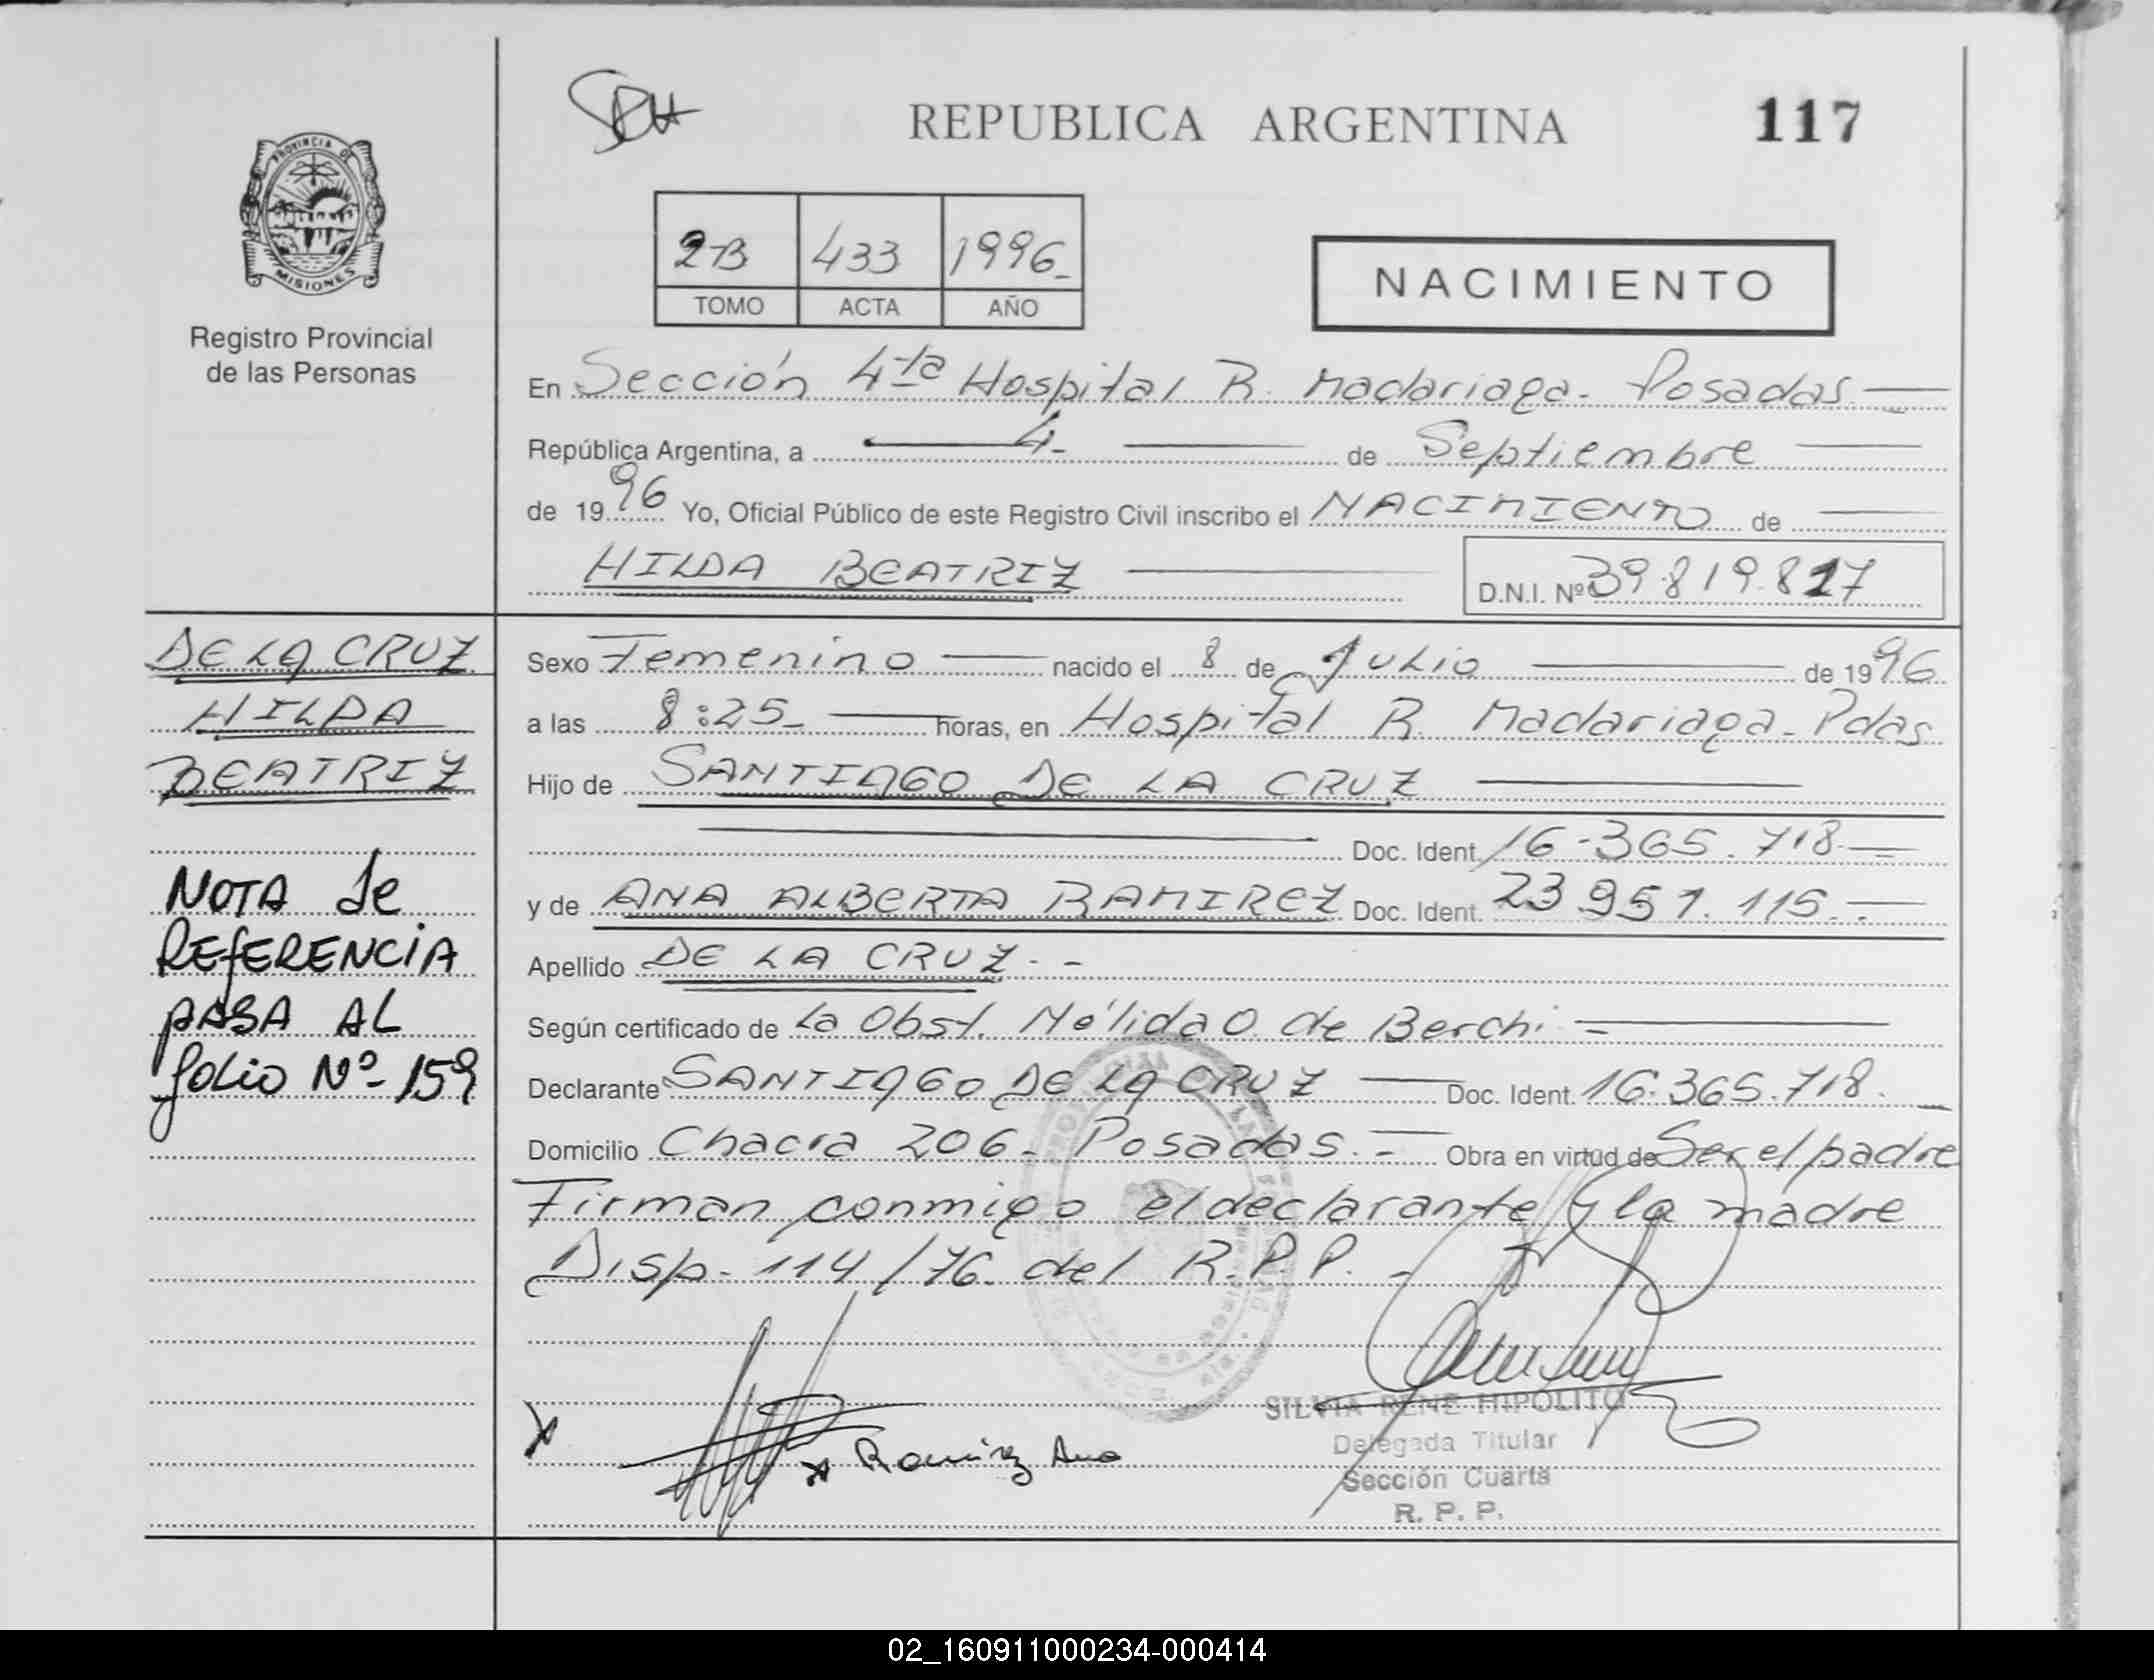 SRH
REPUBLICA ARGENTINA
117
PROVINCIA DE
MISIONES
Registro Provincial
de las Personas
2-B 433 1996_
TOMO ACTA AÑO
NACIMIENTO
En Sección 4ta Hospital R. Madariaga - Posadas
República Argentina, a 4_ de Septiembre
de 1996 Yo, Oficial Público de este Registro Civil inscribo el NACIMIENTO de
HILDA BEATRIZ D.N.I. Nº 39.819.817
DE LA CRUZ
HILDA
BEATRIZ
NOTA de
REfERENCiA
pASA AL
folio Nº- 159
Sexo Femenino nacido el 8 de Julio de 1996
a las 8:25_ horas, en Hospital R. Madariaga - Pdas
Hijo de SANTIAGO DE LA CRUZ
Doc. Ident. 16-365.718
y de ANA ALBERTA RAMIREZ Doc. Ident. 23.951.115
Apellido DE LA CRUZ. -
Según certificado de La Obst. Nélida O. de Berchi
Declarante SANTIAGO DE LA CRUZ Doc. Ident. 16.365.718.
Domicilio Chacra 206 - Posadas. - Obra en virtud de Ser el padre
Firman conmigo el declarante y la madre
Disp. 114/76 del R.P.P. -
x Ramirez Ana
SILVIA RENE HIPOLITO
Delegada Titular
Sección Cuarta
R. P. P.
02_160911000234-000414